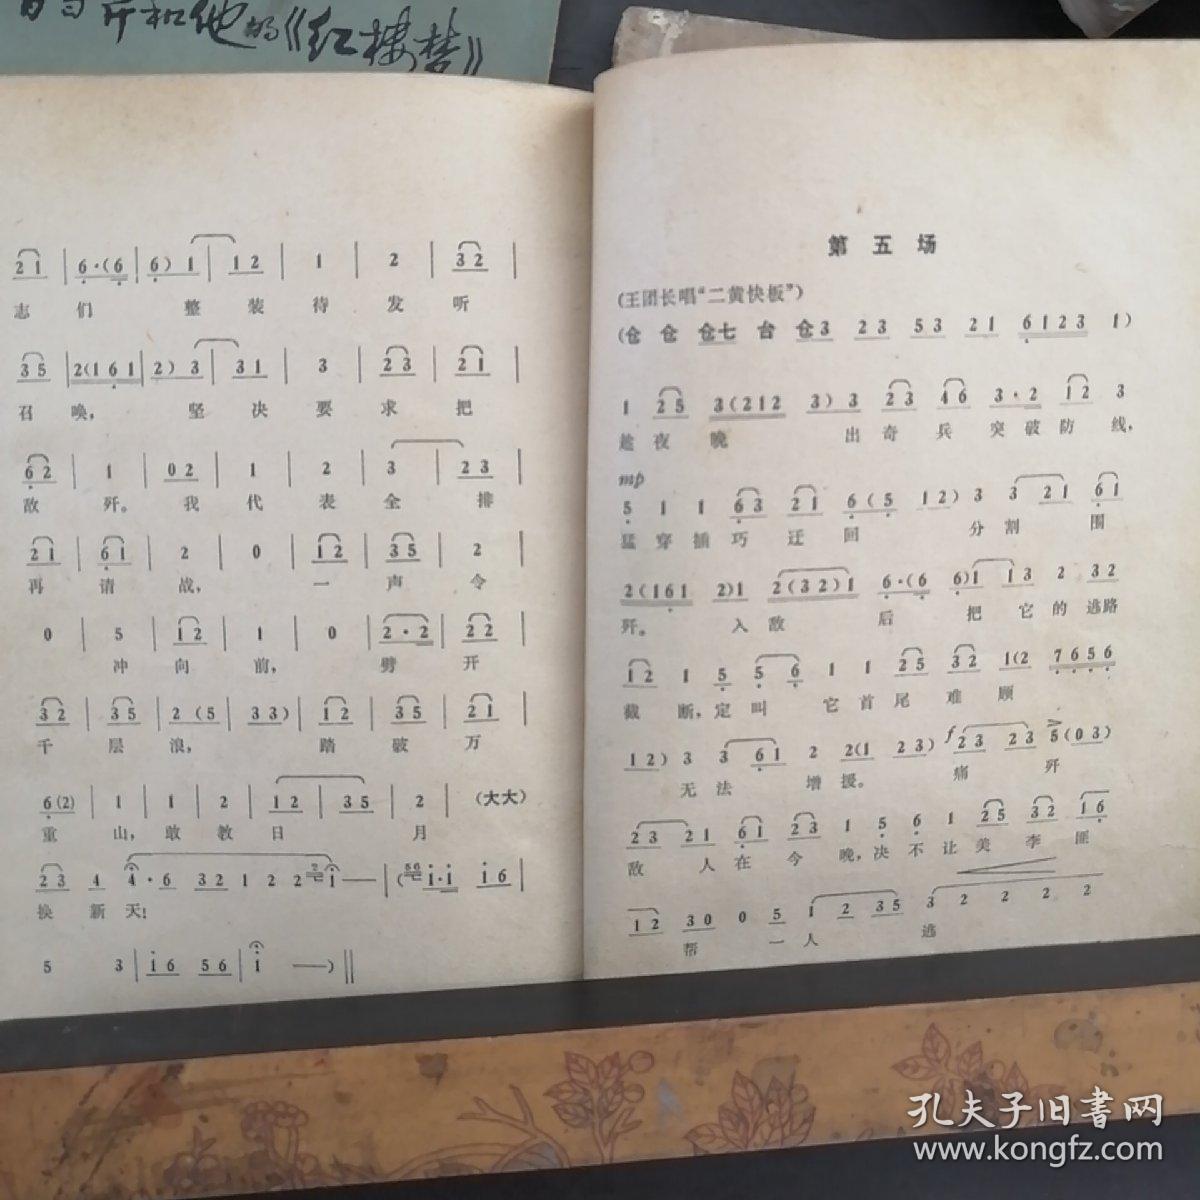 和他的《红楼梦》
2 1 | 6·(6 | 6) 1 | 1 2 | 1 | 2 | 3 2 |
志 们 整 装 待 发 听
3 5 | 2(1 6 1 | 2) 3 | 3 1 | 3 | 2 3 | 2 1 |
召 唤， 坚 决 要 求 把
6 2 | 1 | 0 2 | 1 | 2 | 3 | 2 3 |
敌 歼。 我 代 表 全 排
2 1 | 6 1 | 2 | 0 | 1 2 | 3 5 | 2 |
再 请 战， 一 声 令
0 | 5 | 1 2 | 1 | 0 | 2·2 | 2 2 |
冲 向 前， 劈 开
3 2 | 3 5 | 2 (5 | 3 3) | 1 2 | 3 5 | 2 1 |
千 层 浪， 踏 破 万
6 (2) | 1 | 1 | 2 | 1 2 | 3 5 | 2 | (大大)
重 山，敢 教 日 月
2 3 4 4·6 3 2 1 2 2 2 i — | (56 i·i i 6 |
换 新 天！
5 3 | i 6 5 6 | i —) ||
第 五 场
(王团长唱“二黄快板”)
(仓 仓 仓七 台 仓3 2 3 5 3 2 1 6 1 2 3 1)
1 2 5 3 (2 1 2 3) 3 2 3 4 6 3·2 1 2 3
趁 夜 晚 出 奇 兵 突 破 防 线，
mp
5 1 1 6 3 2 1 6 (5 1 2) 3 3 2 1 6 1
猛 穿 插 巧 迂 回 分 割 围
2 (1 6 1 2) 1 2 (3 2) 1 6·(6 6) 1 1 3 2 3 2
歼。 入 敌 后 把 它 的 逃 路
1 2 1 5 5 6 1 1 2 5 3 2 1 (2 7 6 5 6
截 断，定 叫 它 首 尾 难 顾
1 2) 3 3 6 1 2 2 (1 2 3) f 2 3 2 3 5 (0 3)
无 法 增 援。 痛 歼
2 3 2 1 6 1 2 3 1 5 6 1 2 5 3 2 1 6
敌 人 在 今 晚，决 不 让 美 李 匪
1 2 3 0 0 5 1 2 3 5 3 2 2 2 2
帮 一 人 逃
孔夫子旧書网
www.kongfz.com